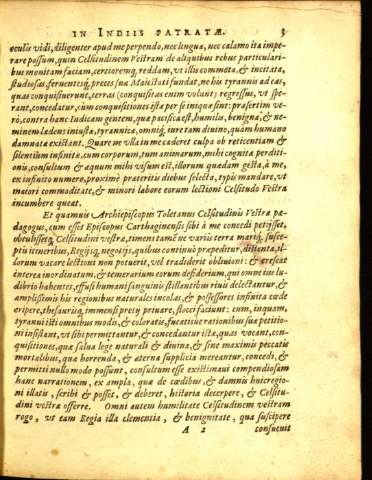 IN INDIIS PATRATÆ. 3
oculis vidi, diligenter apud me perpendo, nec lingua, nec calamo ita impe-
rare possum, quin Celsitudinem Vestram de aliquibus rebus particulari-
bus monitam faciam, certioremq́; reddam, vt illis commota, & incitata,
studiosas, ferventesq́; preces sua Maiestati fundat, ne his tyrannis ad eas,
quas conquisiuerunt, terras (conquisitas enim volunt) regressus, vt spe-
rant, concedatur, cùm conquisitiones istæ per se iniquæ sint: præsertim ve-
rò, contra hanc Indicam gentem, quæ pacifica est, humilis, benigna, & ne-
minem lædens iniustæ, tyrannicæ, omniq́; iure tam diuino, quàm humano
damnatæ existant. Quare ne vlla in me caderet culpa ob reticentiam &
silentium infinitæ, cum corporum, tum animarum, mihi cognitæ perditi-
onis, consultum & æquum mihi visum est, illorum quædam gesta, à me,
ex infinito numero, proximè præteritis diebus selecta, typis mandare, vt
maiori commoditate, & minori labore eorum lectioni Celsitudo Vestra
incumbere queat.
Et quamuis Archiepiscopus Toletanus Celsitudinis Vestræ pæ-
dagogus, cum esset Episcopus Carthaginensis sibi à me concedi petijsset,
obtulissetq́; Celsitudini vestræ, timens tamē ne variis terra mariq́; susce-
ptis itineribus, Regiisq́; negotijs, quibus continuò præpeditur, distenta, il-
lorum vacare lectioni non potuerit, vel tradiderit obliuioni: & crescat
interea inordinatum, & temerarium eorum desiderium, qui omne ius lu-
dibrio habentes, effusi humani sanguinis stillantibus riuis delectantur, &
amplissimis his regionibus naturales incolas, & possessores infinita cæde
eripere, thesaurisq́; immensi precij priuare, flocci faciunt: cum, inquam,
tyranni isti omnibus modis, & coloratis, fucatisue rationibus suæ petitio-
ni insistant, vt sibi permittantur, & concedantur istæ, quas vocant, con-
quisitiones, quæ salua lege naturali & diuina, & sine maximis peccatis
mortalibus, quæ horrenda, & æterna supplicia mereantur, concedi, &
permitti nullo modo possunt, consultum esse existimaui compendiosam
hanc narrationem, ex ampla, quæ de cædibus, & damnis huic regio-
ni illatis, scribi & posset, & deberet, historia decerpere, & Celsitu-
dini vestræ offerre. Omni autem humilitate Celsitudinem vestram
rogo, vt eam Regia illa clementia, & benignitate, qua suscipere
A 2 consueuit